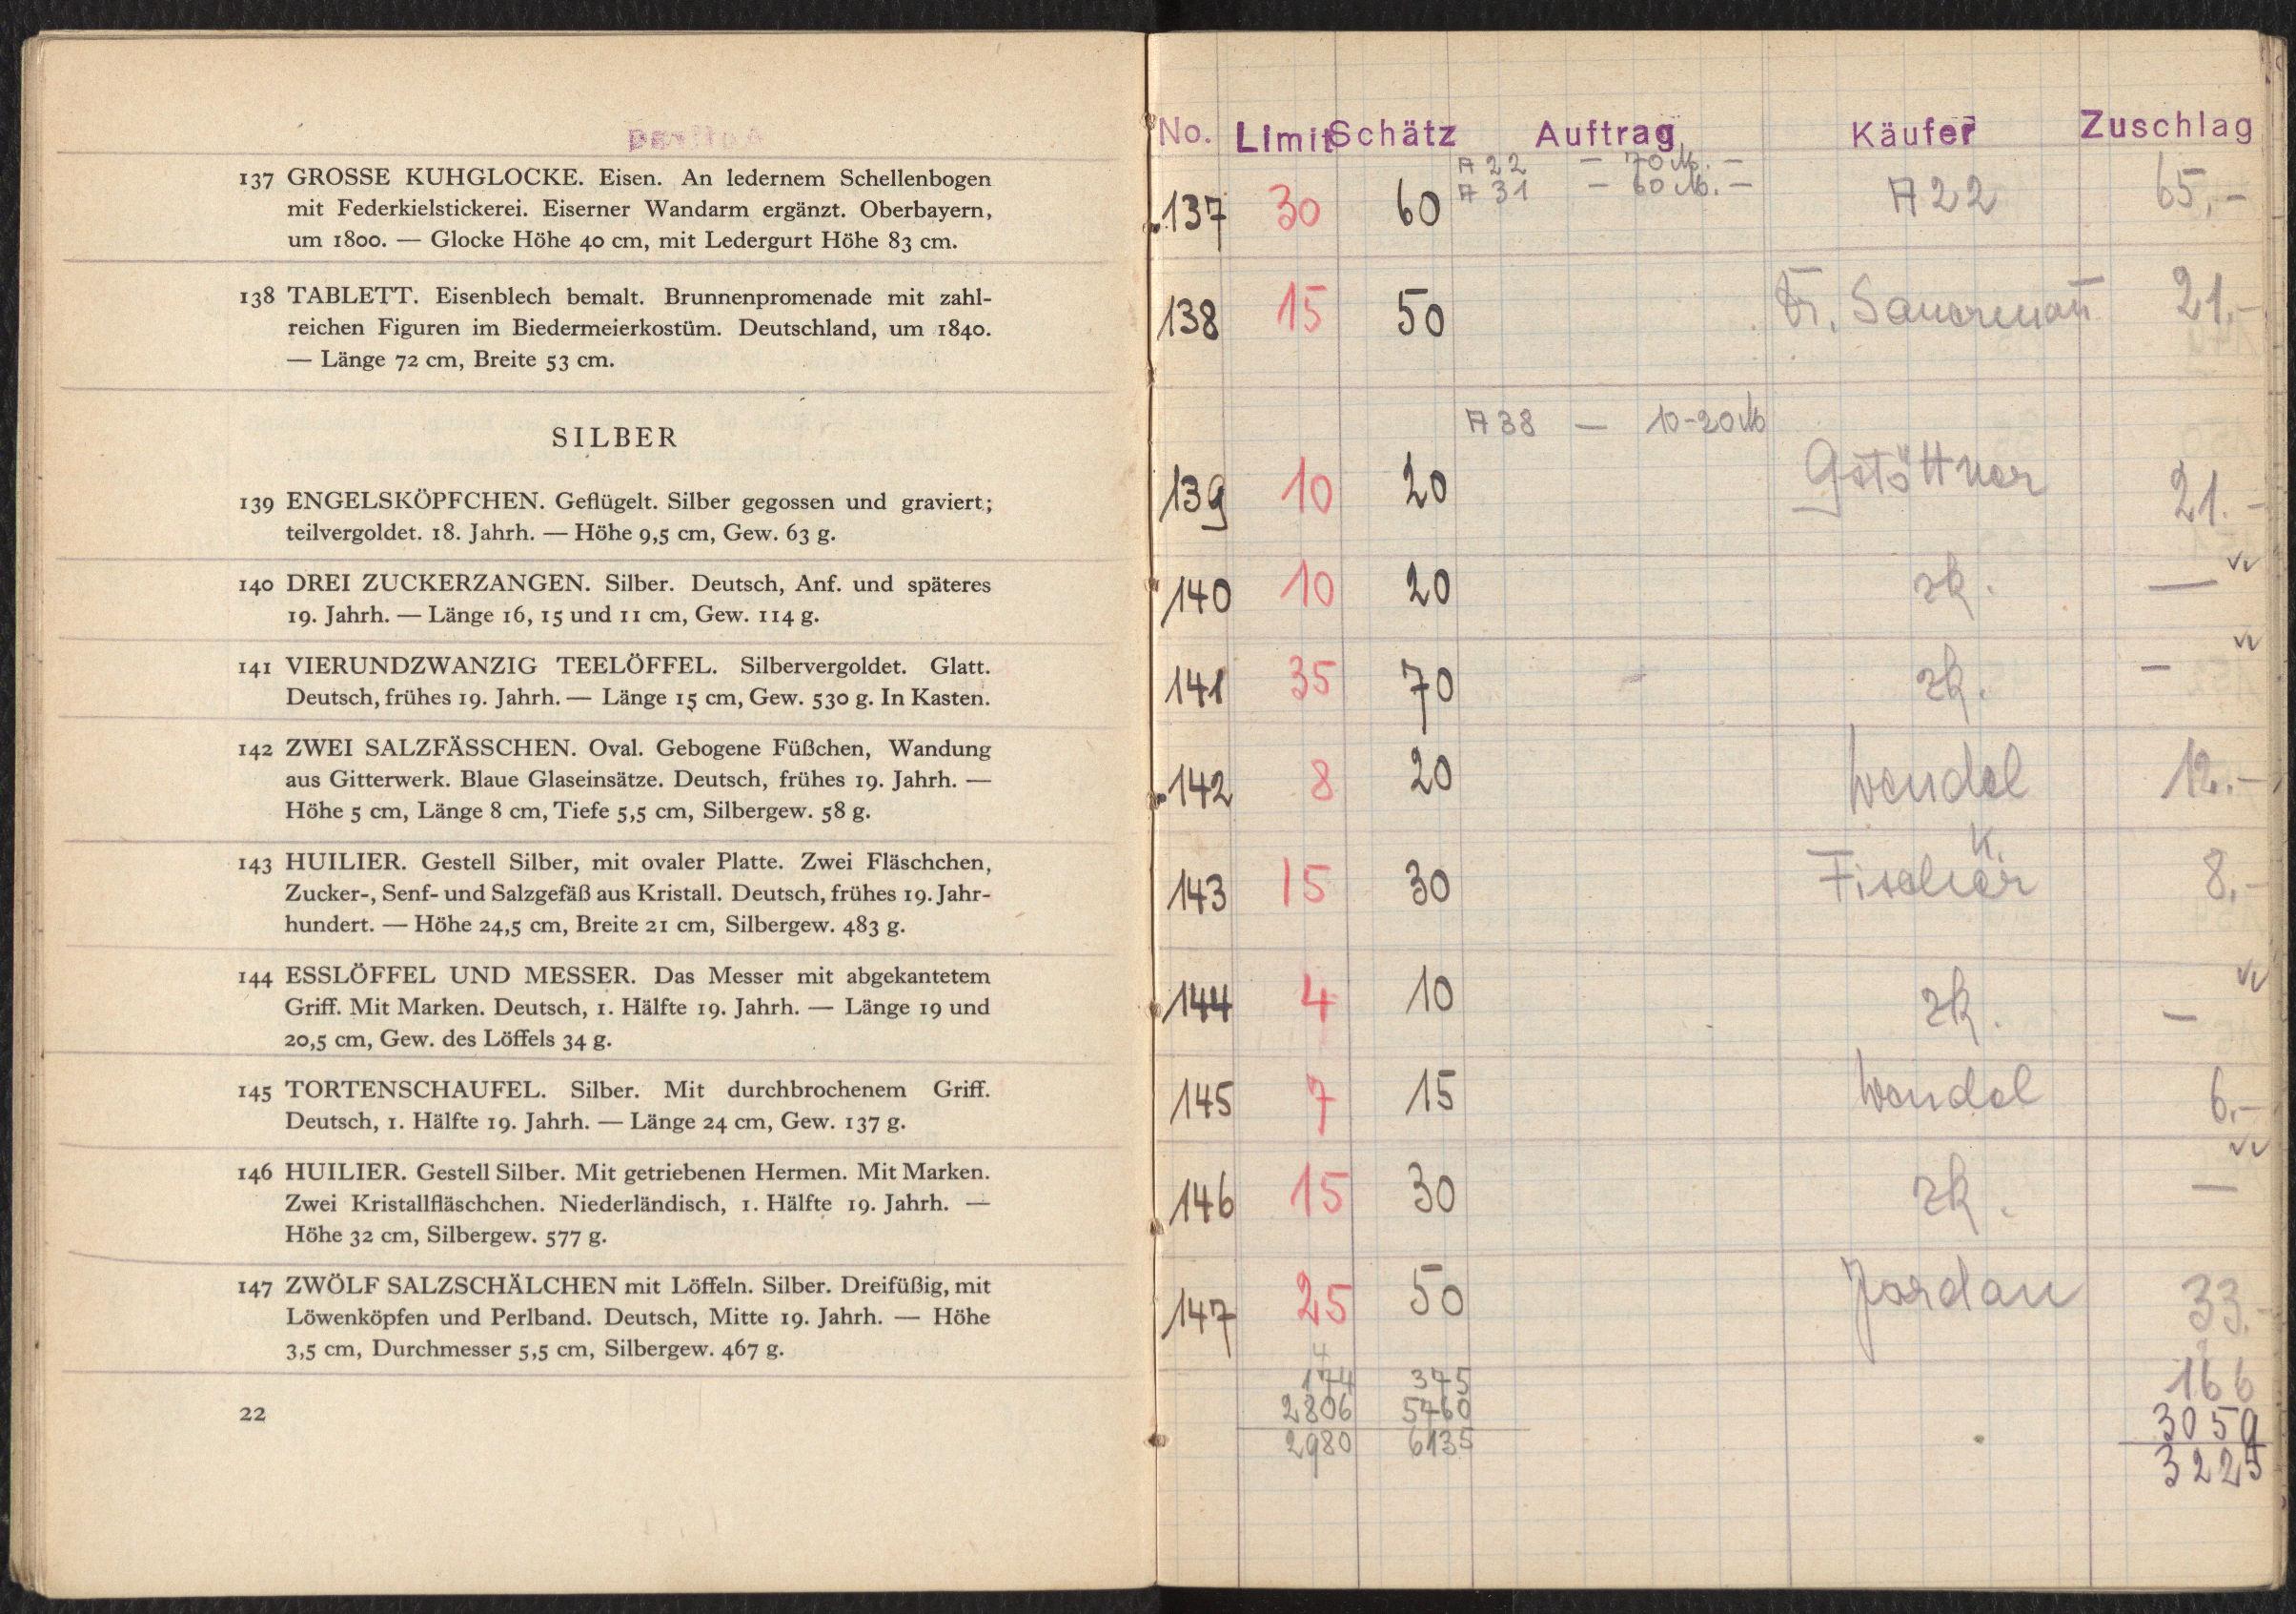 137 GROSSE KUHGLOCKE. Eisen. An ledernem Schellenbogen
mit Federkielstickerei. Eiserner Wandarm ergänzt. Oberbayern,
um 1800. — Glocke Höhe 40 cm, mit Ledergurt Höhe 83 cm.
138 TABLETT. Eisenblech bemalt. Brunnenpromenade mit zahl-
reichen Figuren im Biedermeierkostüm. Deutschland, um 1840.
— Länge 72 cm, Breite 53 cm.
SILBER
139 ENGELSKÖPFCHEN. Geflügelt. Silber gegossen und graviert;
teilvergoldet. 18. Jahrh. — Höhe 9,5 cm, Gew. 63 g.
140 DREI ZUCKERZANGEN. Silber. Deutsch, Anf. und späteres
19. Jahrh. — Länge 16, 15 und 11 cm, Gew. 114 g.
141 VIERUNDZWANZIG TEELÖFFEL. Silbervergoldet. Glatt.
Deutsch, frühes 19. Jahrh. — Länge 15 cm, Gew. 530 g. In Kasten.
142 ZWEI SALZFÄSSCHEN. Oval. Gebogene Füßchen, Wandung
aus Gitterwerk. Blaue Glaseinsätze. Deutsch, frühes 19. Jahrh. —
Höhe 5 cm, Länge 8 cm, Tiefe 5,5 cm, Silbergew. 58 g.
143 HUILIER. Gestell Silber, mit ovaler Platte. Zwei Fläschchen,
Zucker-, Senf- und Salzgefäß aus Kristall. Deutsch, frühes 19. Jahr-
hundert. — Höhe 24,5 cm, Breite 21 cm, Silbergew. 483 g.
144 ESSLÖFFEL UND MESSER. Das Messer mit abgekantetem
Griff. Mit Marken. Deutsch, 1. Hälfte 19. Jahrh. — Länge 19 und
20,5 cm, Gew. des Löffels 34 g.
145 TORTENSCHAUFEL. Silber. Mit durchbrochenem Griff.
Deutsch, 1. Hälfte 19. Jahrh. — Länge 24 cm, Gew. 137 g.
146 HUILIER. Gestell Silber. Mit getriebenen Hermen. Mit Marken.
Zwei Kristallfläschchen. Niederländisch, 1. Hälfte 19. Jahrh. —
Höhe 32 cm, Silbergew. 577 g.
147 ZWÖLF SALZSCHÄLCHEN mit Löffeln. Silber. Dreifüßig, mit
Löwenköpfen und Perlband. Deutsch, Mitte 19. Jahrh. — Höhe
3,5 cm, Durchmesser 5,5 cm, Silbergew. 467 g.
22
No. Limit Schätz Auftrag Käufer Zuschlag
A 22 — 70 M. —
A 31 — 60 M. —
137 30 60 A 22 65.-
138 15 50 Dr. 21.-
A 38 — 10-20 M
139 10 20 Gstöttner 21.-
140 10 20 zk. —
141 35 70 zk. —
142 8 20 Wendel 12.-
K.
143 15 30 Fischer 8.-
144 4 10 zk. —
145 7 15 Wendel 6.-
146 15 30 zk. —
147 25 50 Jordan 33.-
4
174 375 166
2806 5760 3059
2980 6135 3225